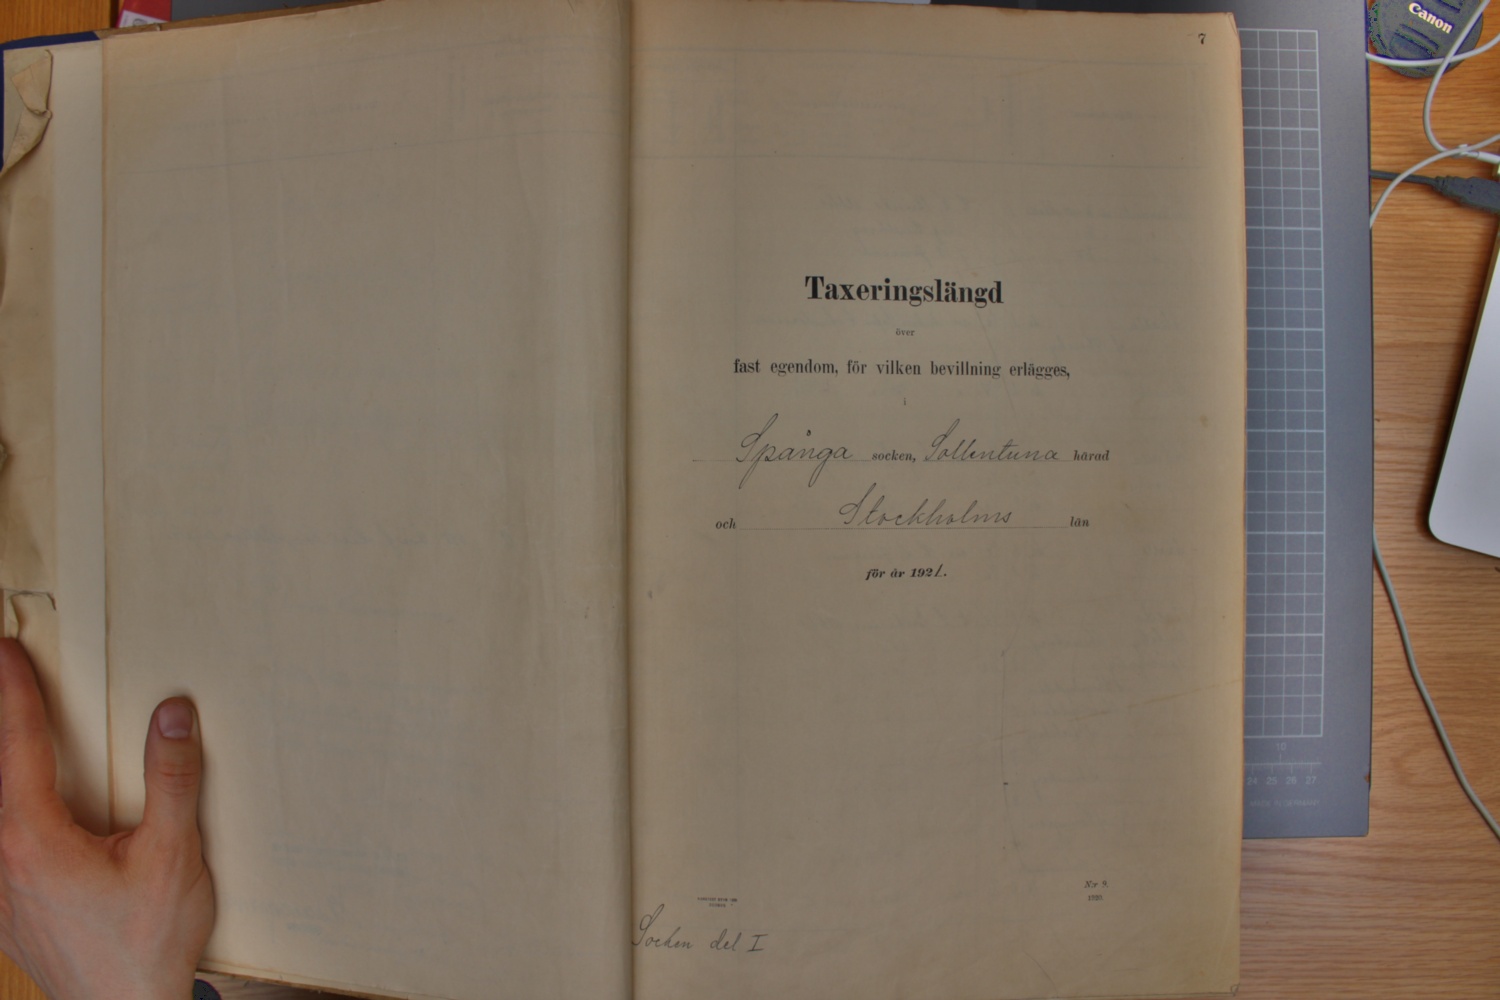 7
Taxeringslängd
över
fast egendom, för vilken bevillning erlägges,
i
Spånga socken, Sollentuna härad
och Stockholms län
för år 1921.
N:r 9.
Socken del I
Canon
10
24 25 26 27